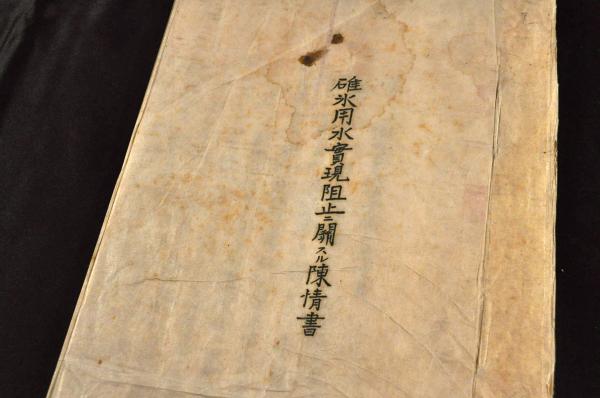 碓氷用水實現阻止ニ關スル陳情書